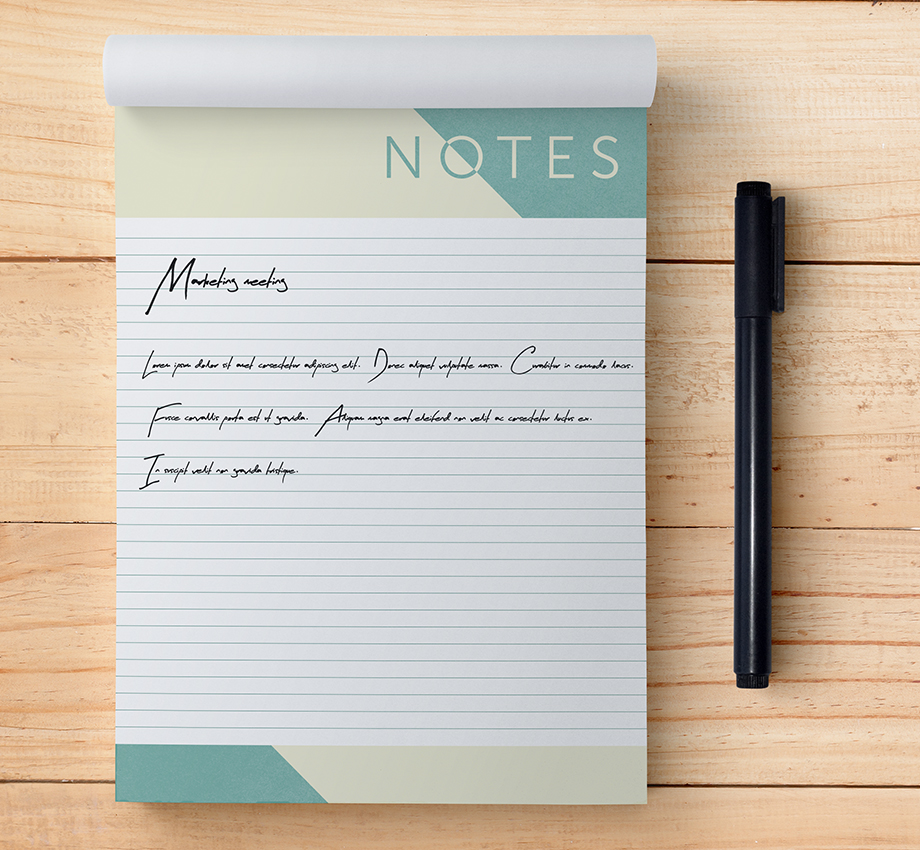 NOTES
Marketing meeting
Lorem ipsum dolor sit amet consectetur adipiscing elit. Donec aliquet vulputate massa. Curabitur in commodo lacus.
Fusce convallis porta est ut gravida. Aliquam magna erat eleifend non velit ac consectetur luctus ex.
In suscipit velit non gravida tristique.